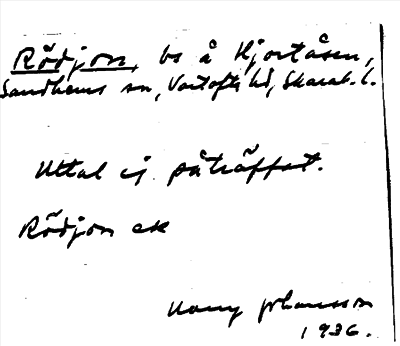 Rödjon, bs å Hjortåsen,
Sandhems sn, Vartofta hd, Skarab. l.
Uttal ej påträffat.
Rödjon ak
Johansson
1936.